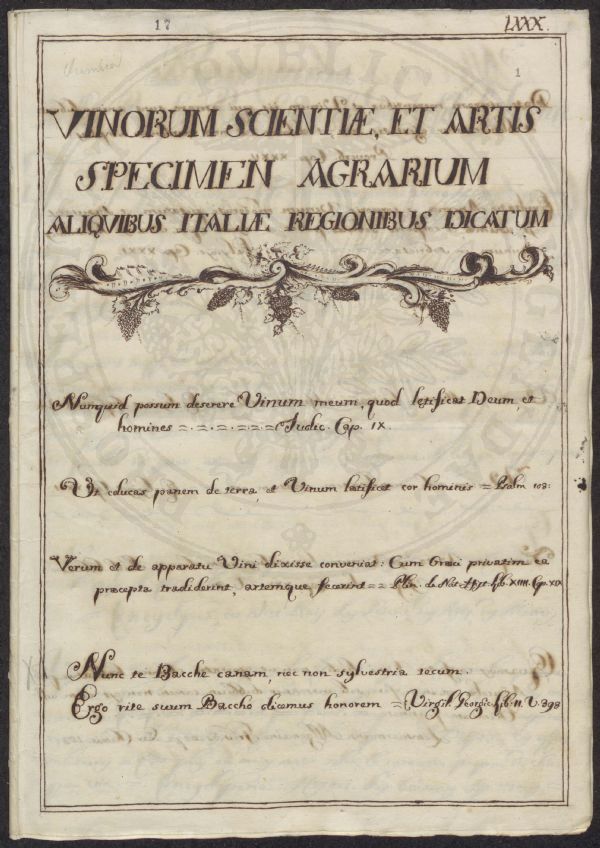 17
LXXX.
1
VINORUM SCIENTIÆ, ET ARTIS
SPECIMEN AGRARIUM
ALIQVIBUS ITALIÆ REGIONIBUS DICATUM
Nunquid possum deserere Vinum meum, quod lętificat Deum, et
homines = . = . = . = . = . = Judic. Cap. IX.
Ut educas panem de terra, et Vinum lætificet cor hominis = Psalm. 103:
Verum et de apparatu Vini dixisse conveniat: Cum Græci privatim ea
præcepta tradiderint, artemque fecerint = = Plin. de Nat. Hist. Lib. XIIII. Cap. XIX
Nunc te Bacche canam, nec non sylvestria tecum.
Ergo rite suum Baccho dicemus honorem = Virgil. Georgic. Lib. II. V. 393